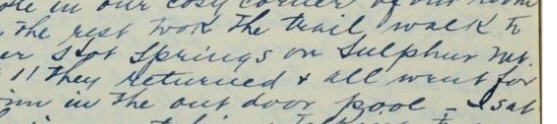 in our cosy corner of our room
the rest took the trail walk to
er Hot Springs on Sulphur Mt.
11 They returned & all went for
im in the out door pool - I sat